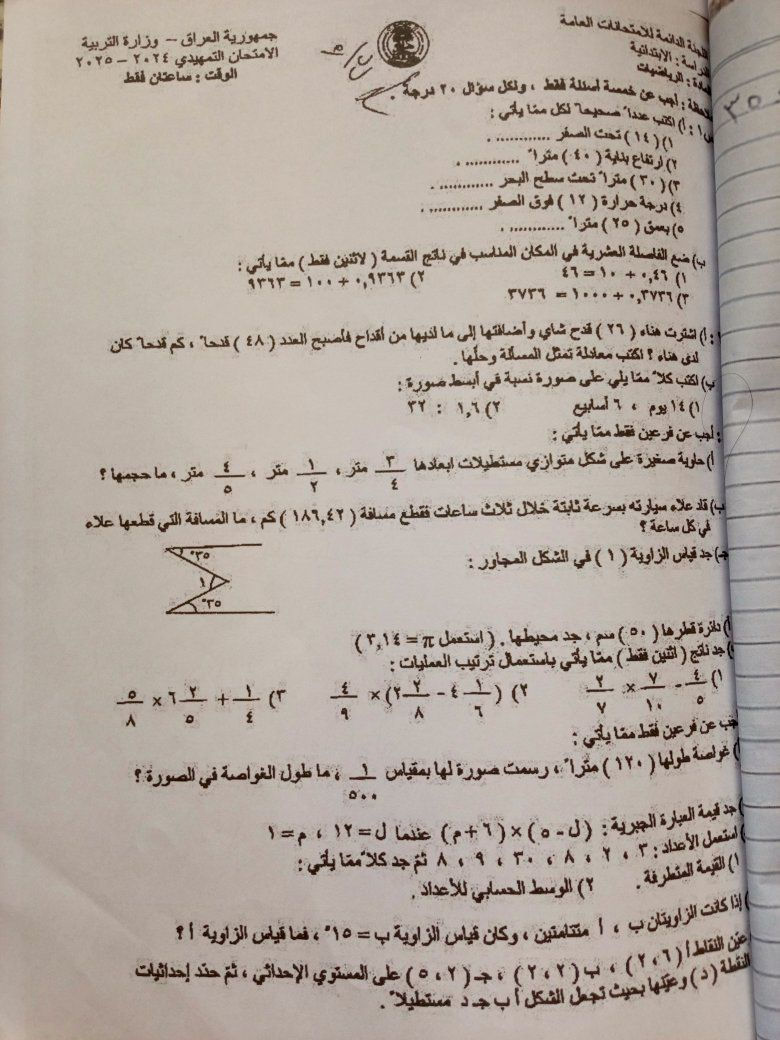 اللجنة الدائمة للامتحانات العامة
الدراسة : الابتدائية
المادة : الرياضيات
جمهورية العراق – وزارة التربية
الامتحان التمهيدي ٢٠٢٤ – ٢٠٢٥
الوقت : ساعتان فقط
ملاحظة : أجب عن خمسة أسئلة فقط ، ولكل سؤال ٢٠ درجة .
س١ : أ) اكتب عدداً صحيحاً لكل ممّا يأتي :
١) ( ١٤ ) تحت الصفر ............ .
٢) ارتفاع بناية ( ٤٠ ) متراً ............ .
٣) ( ٣٠ ) متراً تحت سطح البحر ............ .
٤) درجة حرارة ( ١٢ ) فوق الصفر ............ .
٥) بعمق ( ٢٥ ) متراً ............ .
ب) ضع الفاصلة العشرية في المكان المناسب في ناتج القسمة ( لاثنين فقط ) ممّا يأتي :
١) ٠,٤٦ ÷ ١٠ = ٤٦
٢) ٠,٩٣٦٣ ÷ ١٠٠ = ٩٣٦٣
٣) ٠,٣٧٣٦ ÷ ١٠٠٠ = ٣٧٣٦
: أ) اشترت هناء ( ٢٦ ) قدح شاي وأضافتها إلى ما لديها من أقداح فأصبح العدد ( ٤٨ ) قدحاً ، كم قدحاً كان
لدى هناء ؟ اكتب معادلة تمثل المسألة وحلّها .
ب) اكتب كلاً ممّا يلي على صورة نسبة في أبسط صورة :
١) ١٤ يوم ، ٦ أسابيع ٢) ١,٦ : ٣٢
: أجب عن فرعين فقط ممّا يأتي :
أ) حاوية صغيرة على شكل متوازي مستطيلات ابعادها ٣/٤ متر ، ١/٢ متر ، ٤/٥ متر ، ما حجمها ؟
ب) قاد علاء سيارته بسرعة ثابتة خلال ثلاث ساعات فقطع مسافة ( ١٨٦,٤٢ ) كم ، ما المسافة التي قطعها علاء
في كل ساعة ؟
جـ) جد قياس الزاوية ( ١ ) في الشكل المجاور :
٣٥°
١
٣٥°
أ) دائرة قطرها ( ٥٠ ) سم ، جد محيطها . ( استعمل π = ٣,١٤ )
جد ناتج ( اثنين فقط ) ممّا يأتي باستعمال ترتيب العمليات :
١) ٤/٥ - ٧/١٠ × ٢/٧ ٢) ( ٤ ١/٦ - ٢ ٢/٨ ) × ٤/٩ ٣) ١/٤ + ٦ ٢/٥ × ٥/٨
أجب عن فرعين فقط ممّا يأتي :
أ) غواصة طولها ( ١٢٠ ) متراً ، رسمت صورة لها بمقياس ١/٥٠٠ ، ما طول الغواصة في الصورة ؟
) جد قيمة العبارة الجبرية : ( ل - ٥ ) × ( ٦ + م ) عندما ل = ١٢ ، م = ١
) استعمل الأعداد : ٣ ، ٢ ، ٨ ، ٣٠ ، ٩ ، ٨ ثمّ جد كلاً ممّا يأتي :
١) القيمة المتطرفة . ٢) الوسط الحسابي للأعداد .
) إذا كانت الزاويتان ب ، أ متتامتين ، وكان قياس الزاوية ب = ١٥° ، فما قياس الزاوية أ ؟
عيّن النقاط أ ( ٢,٦ ) ، ب ( ٢,٢ ) ، جـ ( ٥,٢ ) على المستوي الإحداثي ، ثمّ حدّد إحداثيات
النقطة ( د ) وعيّنها بحيث تجعل الشكل أ ب جـ د مستطيلاً .